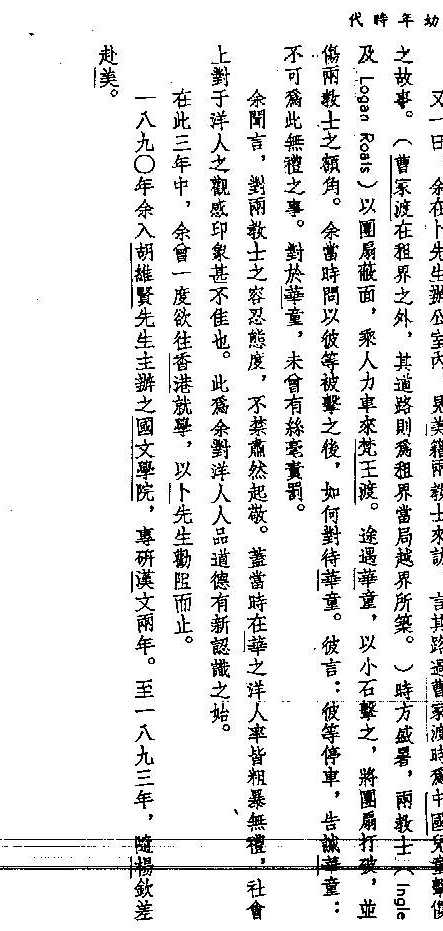 幼年時代
又一日,余在卜先生辦公室內,見美籍兩教士來訪,言其路過曹家渡時爲中國兒童擊傷
之故事。(曹家渡在租界之外,其道路則爲租界當局越界所築。)時方盛暑,兩教士(Ingle
及 Logan Roals)以團扇蔽面,乘人力車來梵王渡。途遇華童,以小石擊之,將團扇打破,並
傷兩教士之額角。余當時問以彼等被擊之後,如何對待華童。彼言:彼等停車,告誡華童:
不可爲此無禮之事。對於華童,未曾有絲毫責罰。
余聞言,對兩教士之容忍態度,不禁肅然起敬。蓋當時在華之洋人率皆粗暴無禮,社會
上對于洋人之觀感印象甚不佳也。此爲余對洋人人品道德有新認識之始。
在此三年中,余曾一度欲往香港就學,以卜先生勸阻而止。
一八九〇年余入胡雄賢先生主辦之國文學院,專研漢文兩年。至一八九三年,隨楊欽差
赴美。